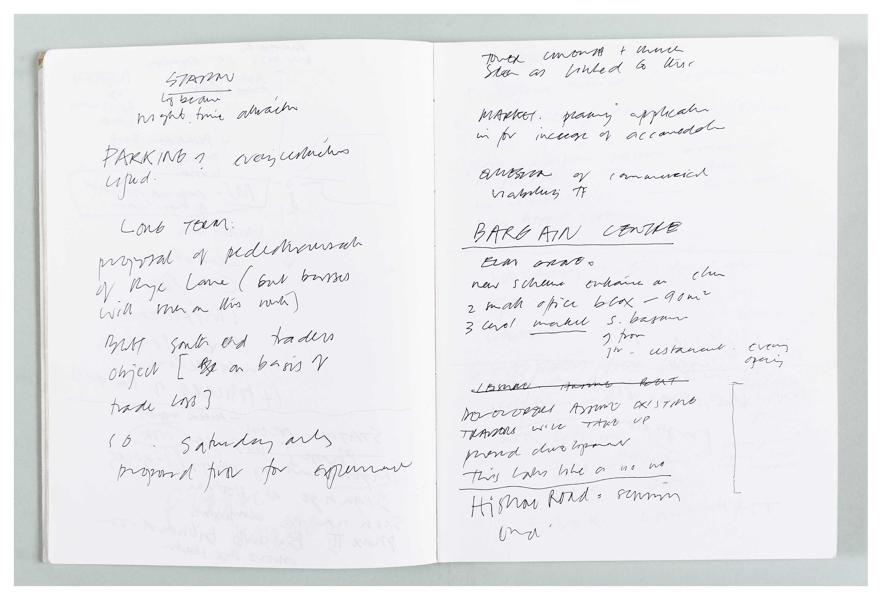 STATION
to become
night time attraction
PARKING ?
LONG TERM:
proposal of pedestrianisation
of Rye Lane (but busses
will run on this route)
BUT south end traders
object [ on basis of
trade loss]
so : Saturday only
proposed first for experiment
Tower + church
Seen as linked to this
MARKET. planning application
in for increase of accommodation
QUESTION of commercial
viability
BARGAIN CENTRE
ELM GROVE
new scheme entrance on
2 small office blox - 90m²
3 level market s. basement
g floor
1st restaurant. evening
opening
DEVELOPERS ASSUME EXISTING
TRADERS WILL TAKE UP
phased development
This looks like a no no
Road